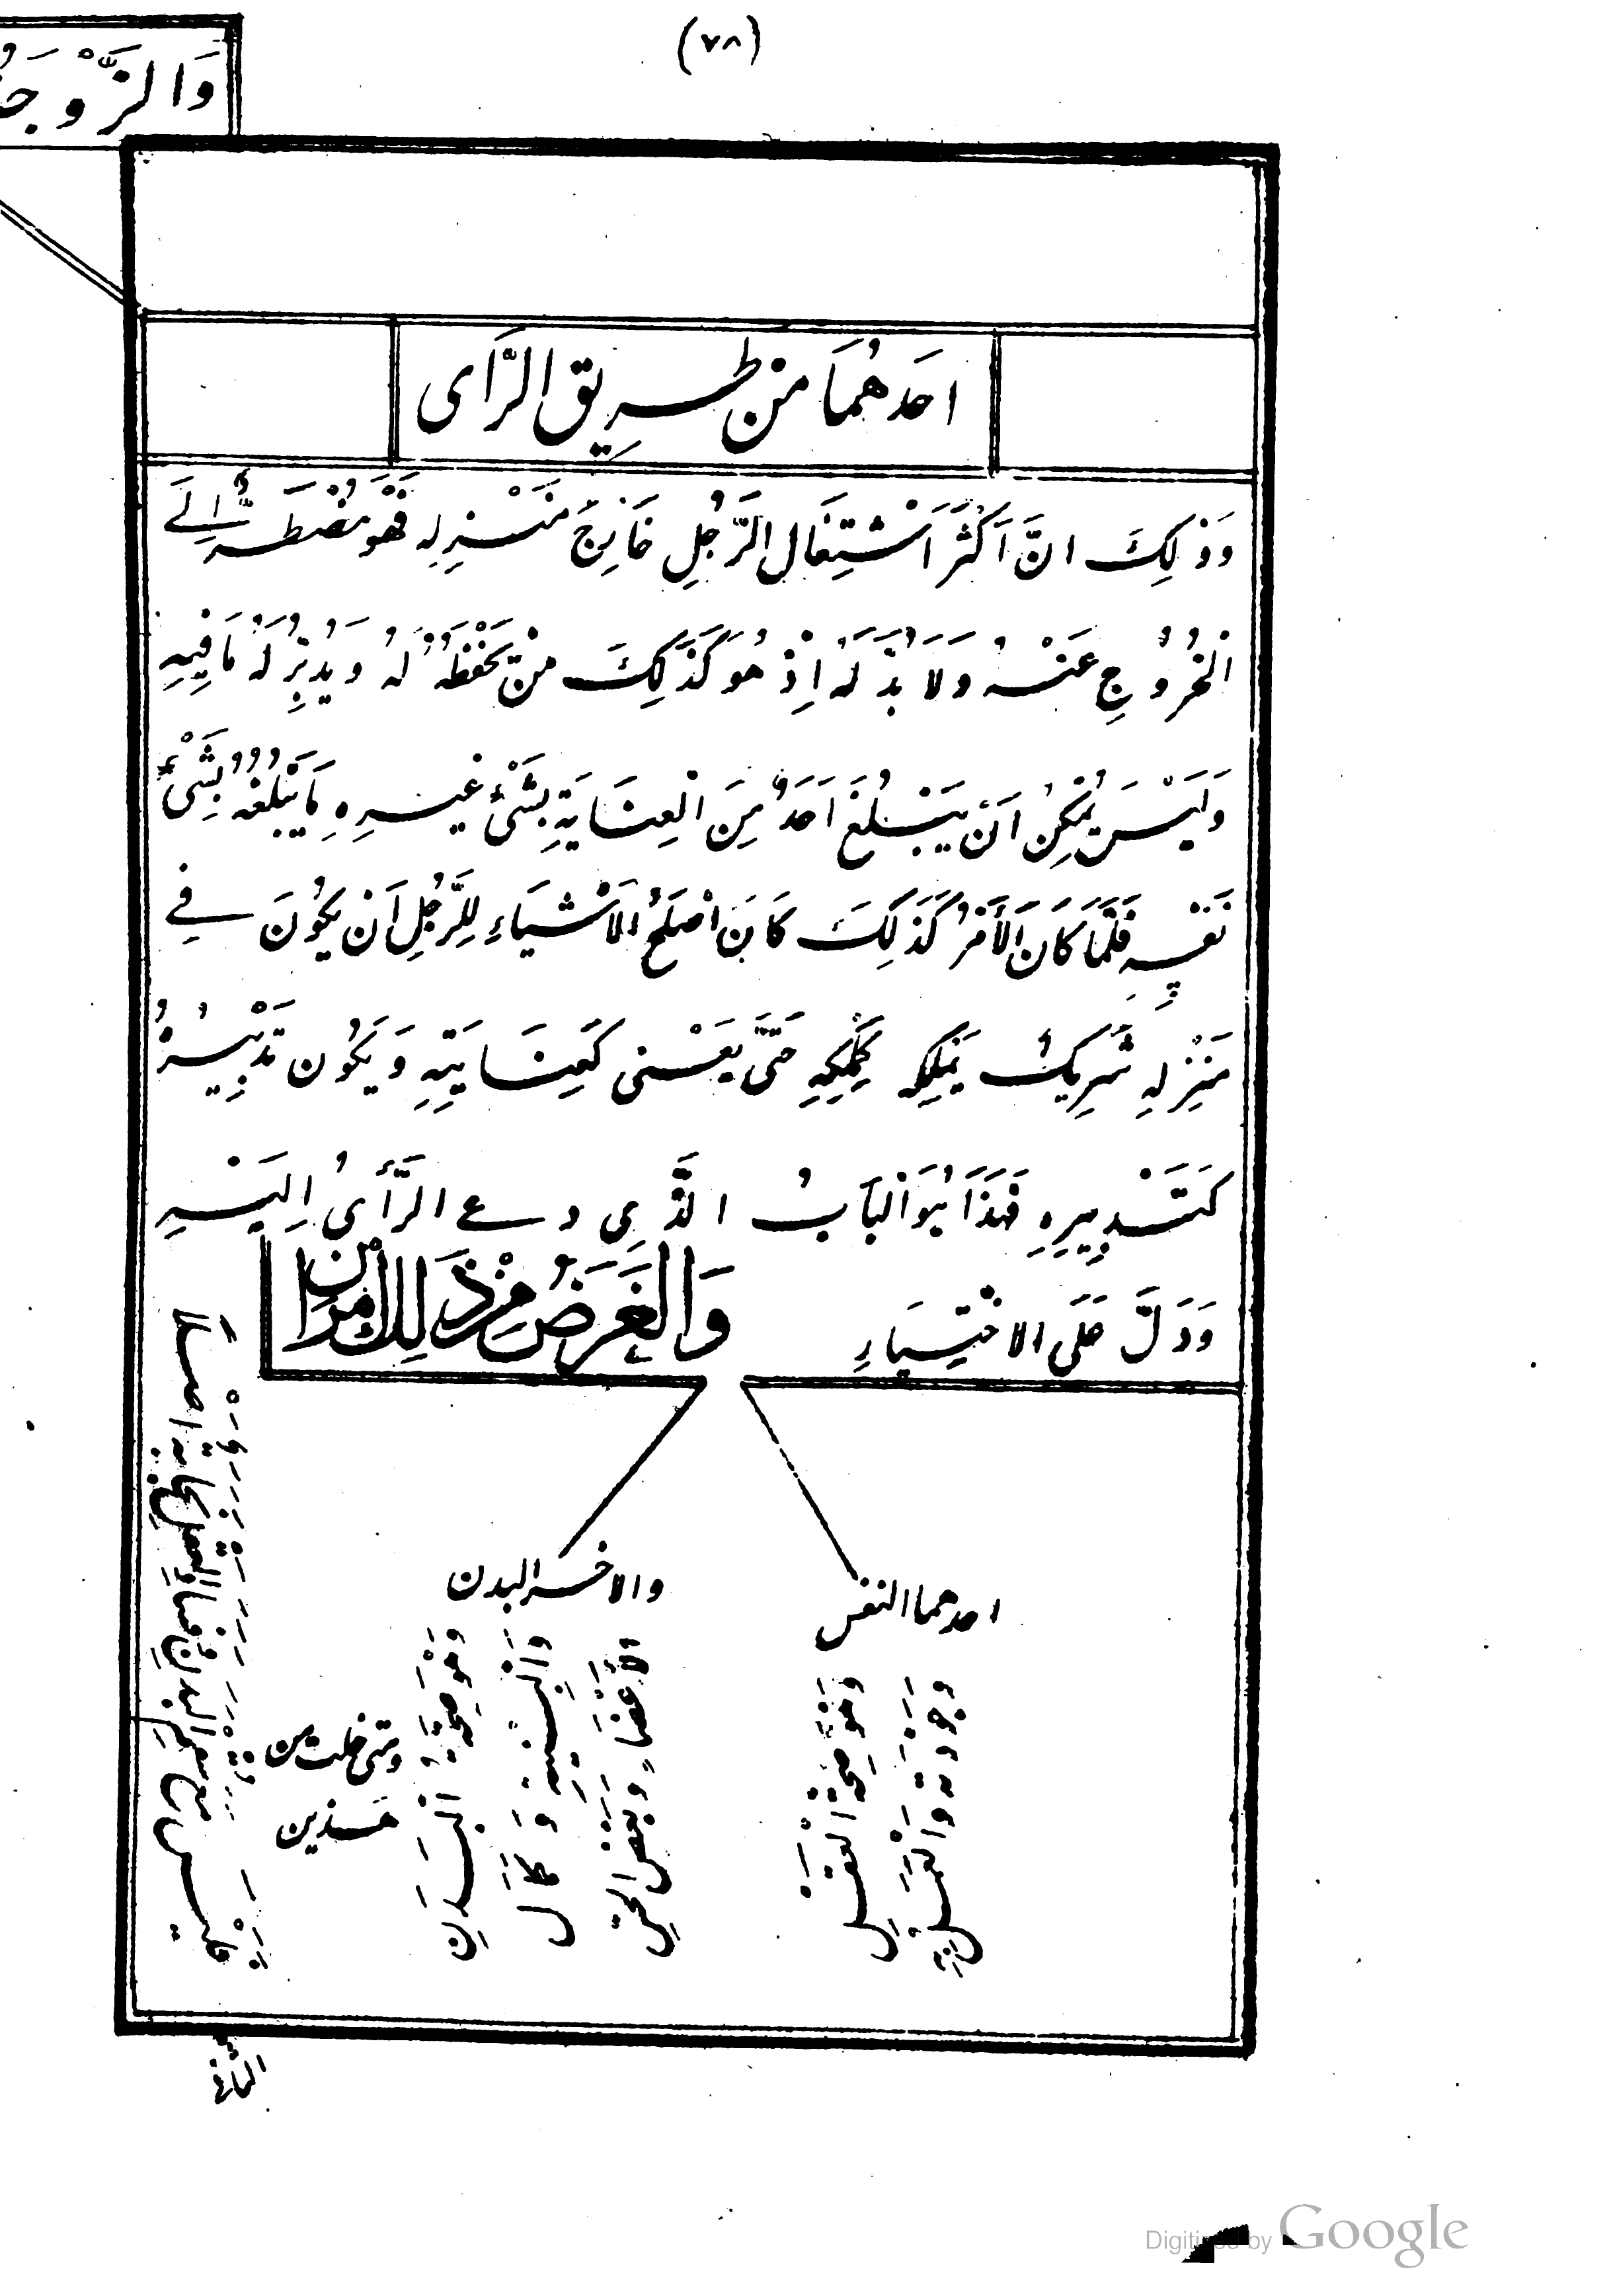 (٧٨)
وَالزَّوْجَ
احَدهُمَا مِن طَرِيق الرَّاى
وَذٰلِكَ انَّ اَكْثَرَ اشْتِغَال الرَّجُلِ خَارِجَ مَنْزِلِه فَهُوَ مُضْطَرٌّ اِلَے
الْخُرُوْجِ عَنْهُ وَلَا بُدَّ لَهُ اِذْ هُوَ كَذٰلِكَ مِنْ يَحْفَظُهُ لَهُ وَيُدَبِّرُ لَهُ مَا فِيْهِ
وَلَيْسَ يُمْكِنُ اَنْ يَبْلُغَ اَحَدٌ مِنَ الْعِنَايَةِ بِشَىْءٍ غَيْرِهِ مَا يَبْلُغُهُ بِشَىْءٍ
نَفْسِهِ فَلَمَّا كَانَ الْأَمْرُ كَذٰلِكَ كَانَ اصْلَحُ الْاَشْيَاءِ لِلرَّجُلِ اَنْ يَكُوْنَ فِے
مَنْزِلِهِ شَرِيْكٌ يَمْلِكُه كَمِلْكِهِ حَتّٰى يَعْنٰى كَعِنَايَتِهِ وَيَكُوْن تَدْبِيْرُهُ
كَتَدْبِيرِهِ فَهٰذَا هُوَ الْبَابُ الَّذِى دعے الرَّأىُ اِلَيْهِ
وَدَلَّ عَلَى الاخْتِيَارِ
وَالْغَرَضُ مِنْ ذٰلِكَ اَمْرَانِ
احدهما النفس
وَهُوَ صِحَّةُ الْعَقْلِ
وَجَوْدَته وَالْعَمَل بِهِ
والاخر البدن
وَهُوَ صِحَّةُ الْبَدَنِ
وَالْبِنْيَةِ وَكَمَال
الأَعْضَاءِ وَبَعْضِ الحُسْنِ
ومتى خلت من
هٰذين